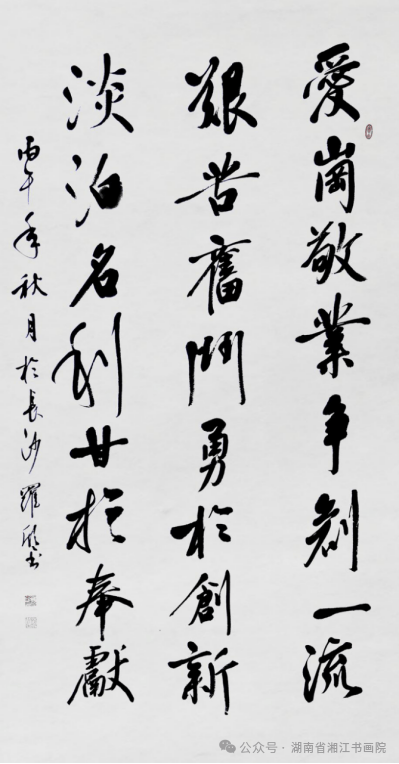 愛崗敬業争創一流
艱苦奮鬥勇於創新
淡泊名利甘於奉獻
丙午年秋月於長沙羅書
公众号 · 湖南省湘江书画院